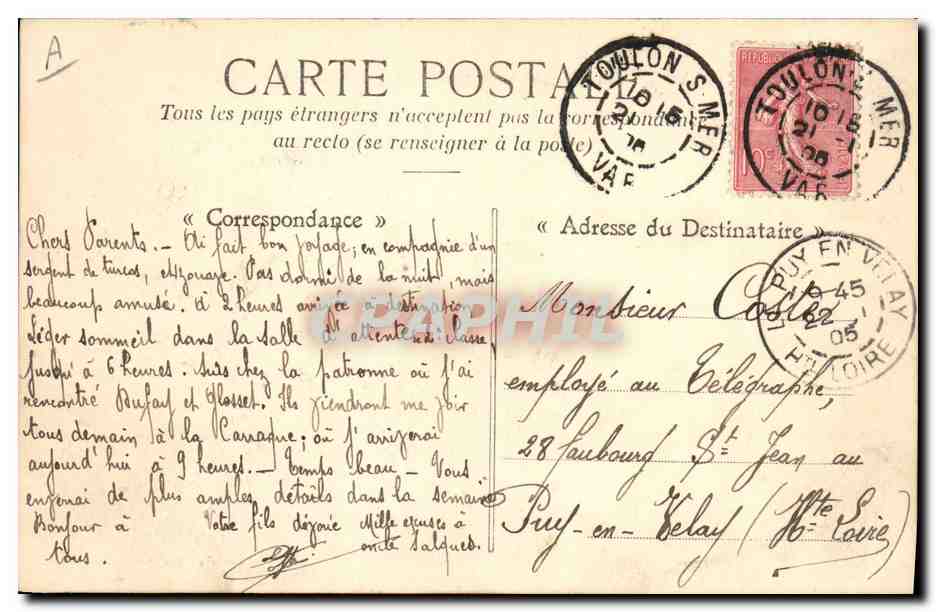 A
CARTE POSTALE
Tous les pays étrangers n'acceptent pas la correspondance
au recto (se renseigner à la poste)
TOULON S MER
10 15
21 -1
05
VAR
REPUBLIQUE
10
TOULON S MER
10 15
21 -1
05
VAR
« Correspondance »
Chers Parents. - Ai fait bon voyage, en compagnie d'un
sergent de turcos, et zouave. Pas dormi de la nuit, mais
beaucoup amusé. à 2 heures arrivée à destination
Léger sommeil dans la salle d'attente classe
jusqu'à 6 heures. Suis chez la patronne où j'ai
rencontré Dufay et Glosset. Ils viendront me voir
tous demain à la Carraque, où j'arriverai
aujourd'hui à 9 heures. - Temps beau - Vous
enverrai de plus amples détails dans la semaine
Bonjour à
tous.
Votre fils dévoué
Mille excuses à
« Adresse du Destinataire »
LE PUY EN VELAY
9 45
22 -1
05
HTE LOIRE
Monsieur Coste
employé au Télégraphe,
28 Faubourg St Jean au
Puy-en-Velay (Hte Loire)
CPAPHIL